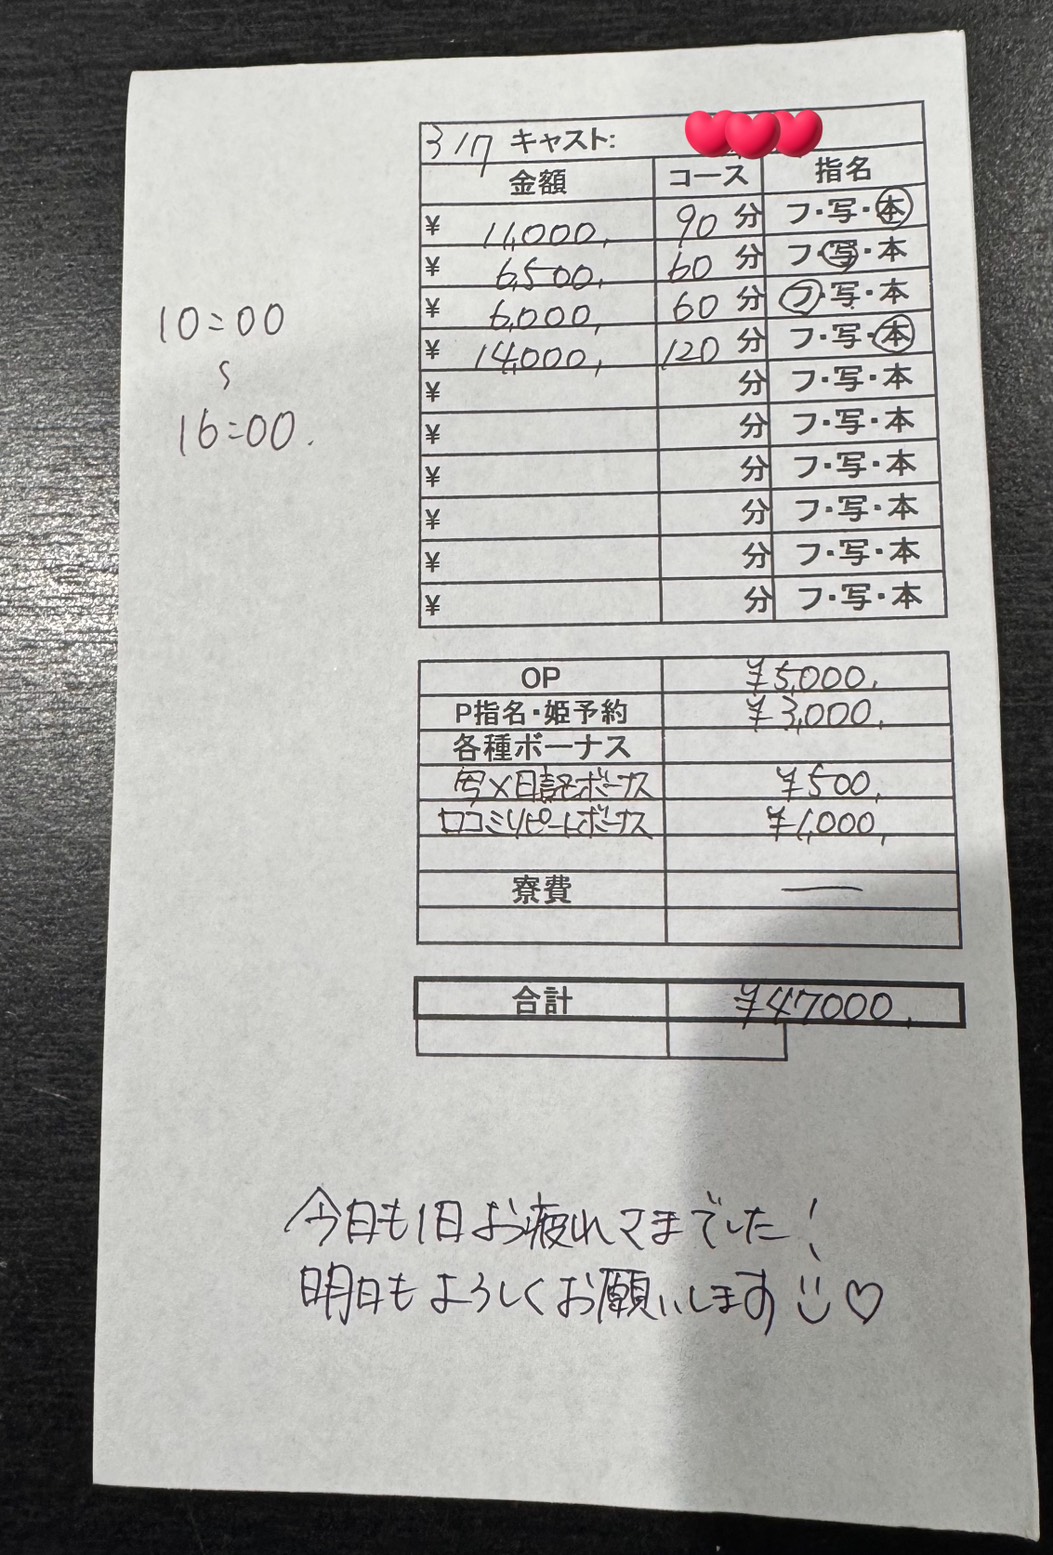 3/17 キャスト:
金額 コース 指名
¥ 11,000, 90 分 フ・写・本
¥ 6,500, 60 分 フ・写・本
¥ 6,000, 60 分 フ・写・本
¥ 14,000, 120 分 フ・写・本
¥ 分 フ・写・本
¥ 分 フ・写・本
¥ 分 フ・写・本
¥ 分 フ・写・本
¥ 分 フ・写・本
¥ 分 フ・写・本
10:00
〜
16:00.
OP ¥5,000,
P指名・姫予約 ¥3,000,
各種ボーナス
写メ日記ボーナス ¥500,
口コミリピートボーナス ¥1,000,
寮費 ―
合計 ¥47000,
今日も1日お疲れさまでした!
明日もよろしくお願いします